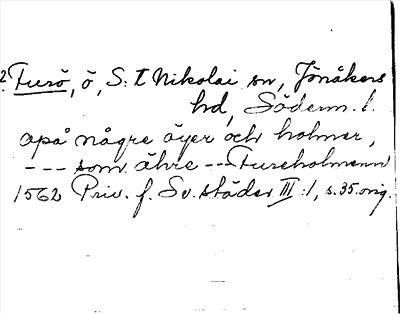 2. Furö, ö, S:t Nikolai sn, Jönåkers
hd, Söderm. l.
opå någre öyer och holmer,
--- som ähre -- Fureholmenn
1562 Priv. f. Sv. städer III:1, s. 35. orig.